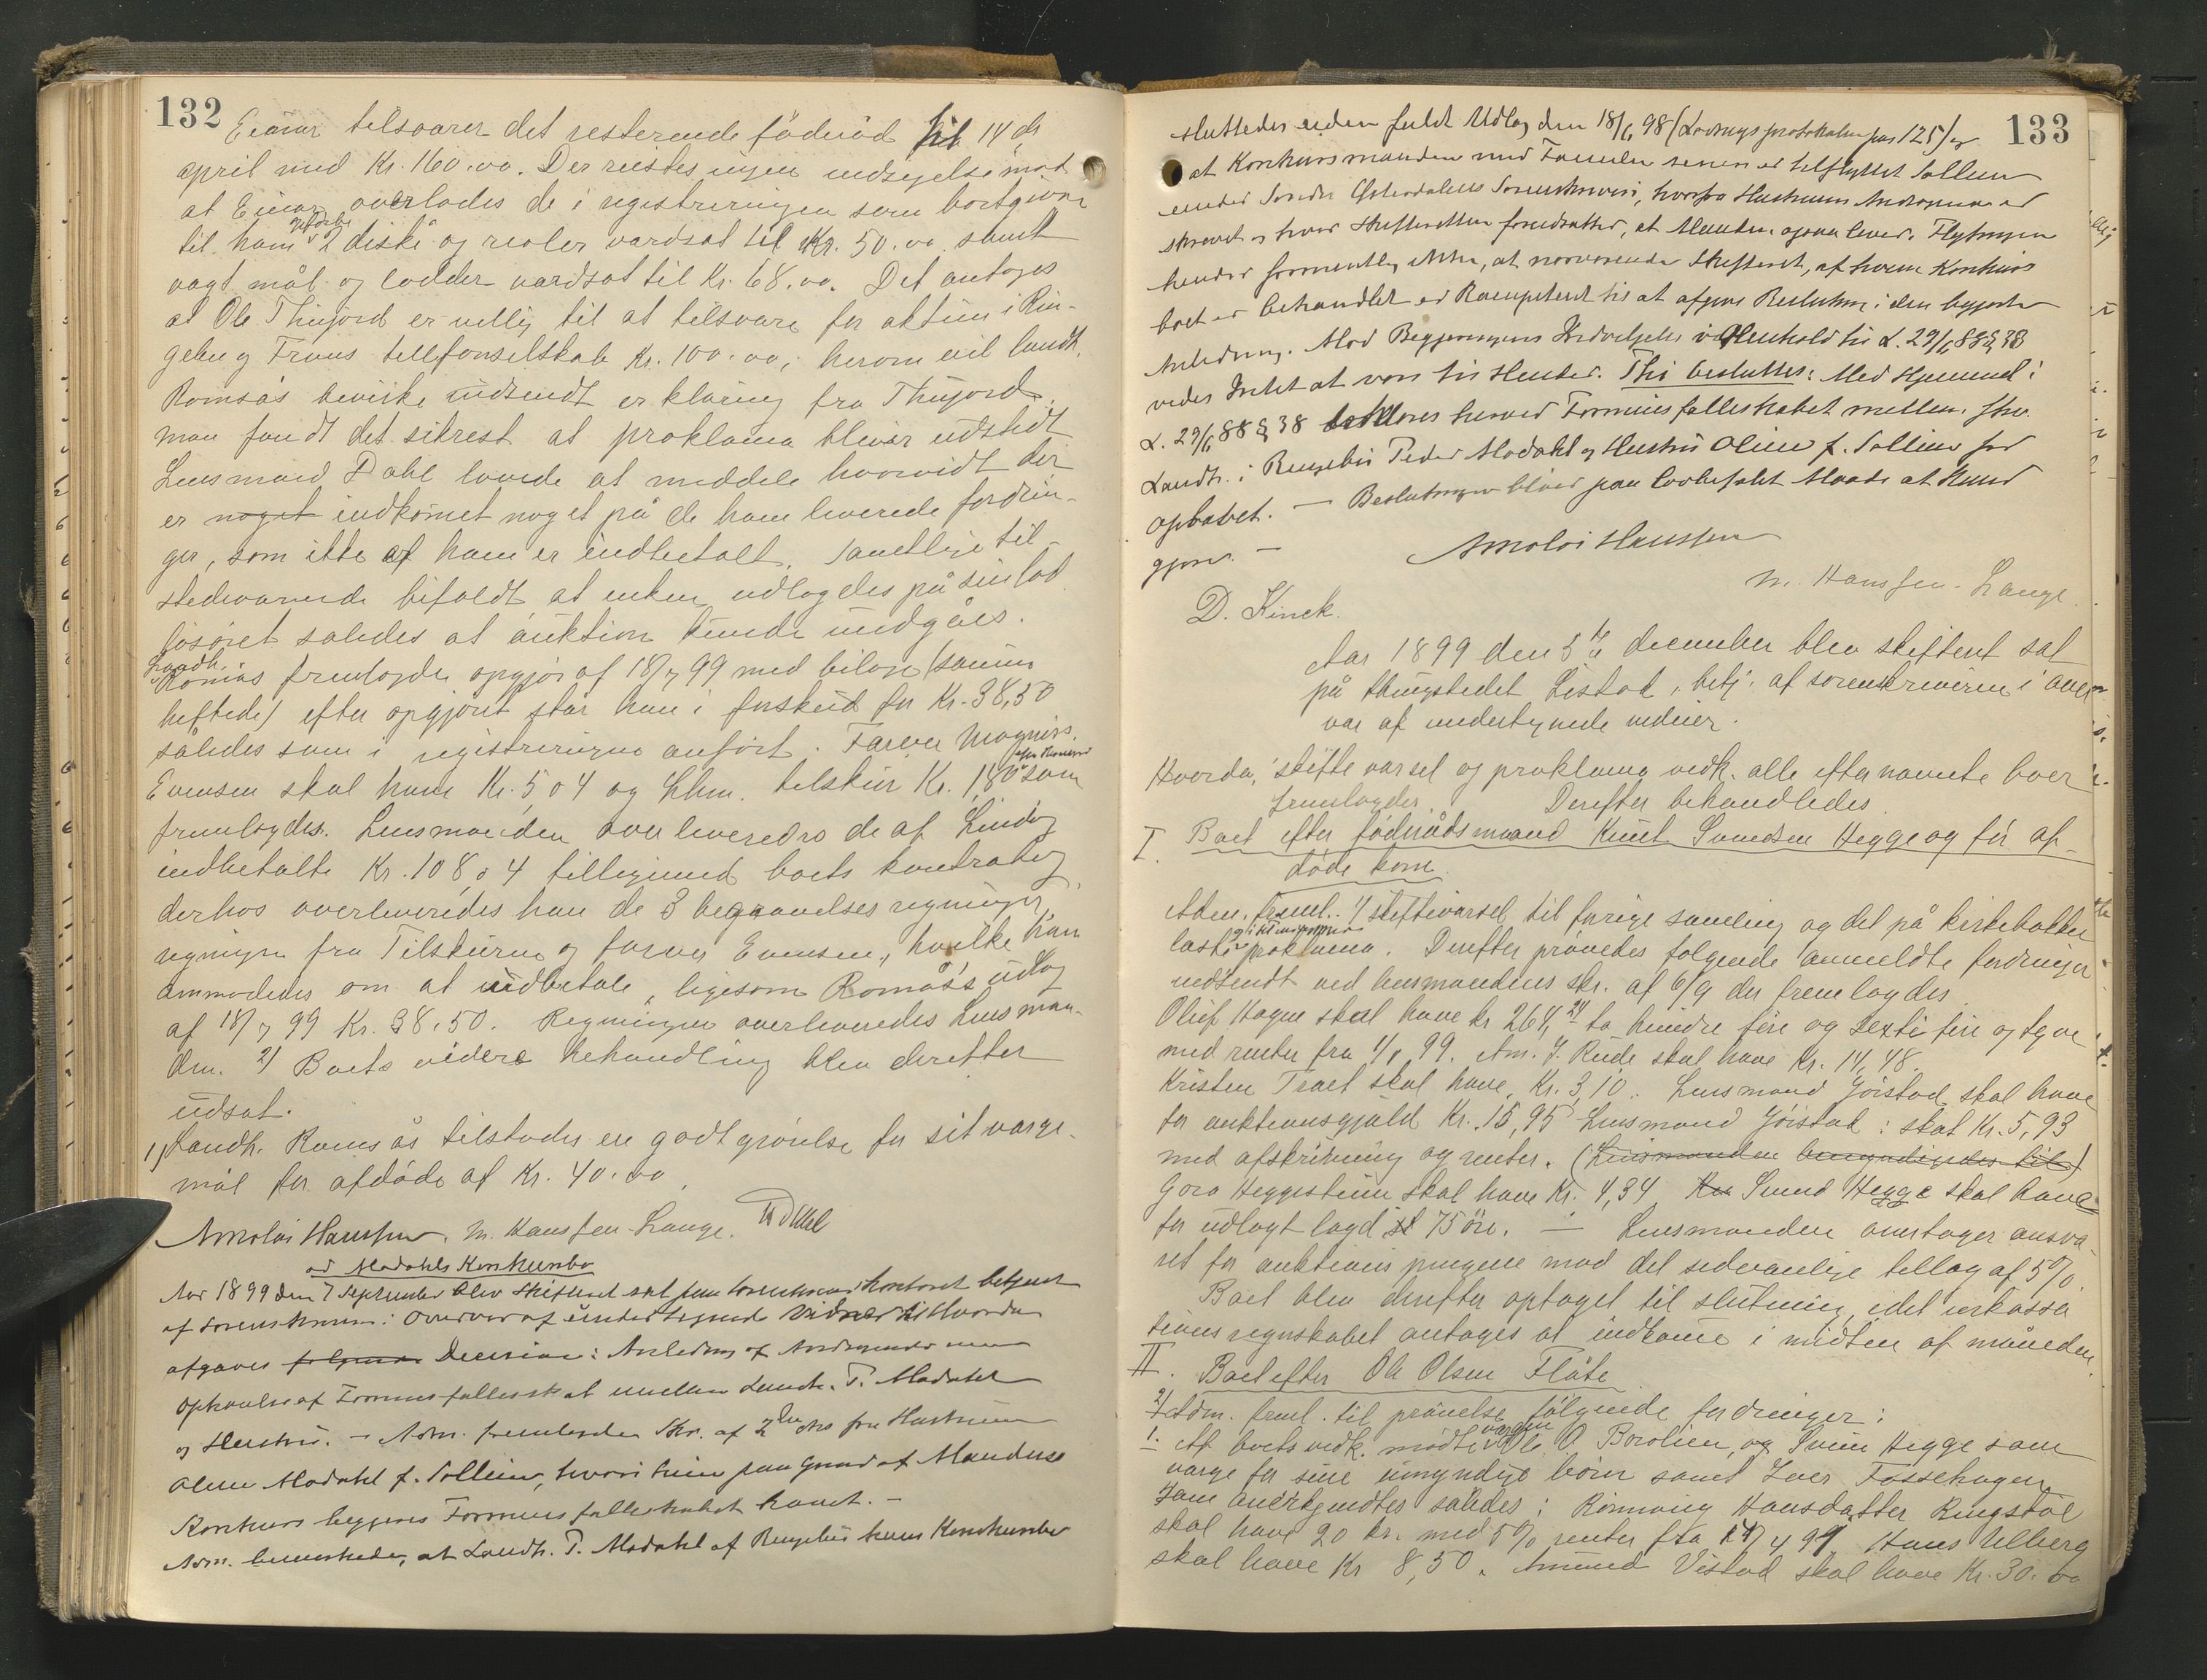 132
Einar tilsvarer det resterende födråd til 14de
april med Kr. 160.00. Der reistes ingen indsigelse mod
at Einar overlodes de i registreringen som bortgivne
til ham 2 diske og reoler værdsat til Kr. 50.00 samt
vægt mål og lodder værdsat til Kr. 68.00. Det antoges
at Ole Thujord er villig til at tilsvare for aktien i Rin-
gebu og Frons tellefonselskab Kr. 100.00, herom vil landh.
Romsås bevirke indsendt erklæring fra Thujord.
man fandt det sikrest at proklama bliver udstedt
Lensmand Dahl lovede at meddele hvorvidt der
er noget indkommet noget på de ham leverede fordrin-
ger, som ikke af ham er indbetalt. Samtlige til-
stedeværende bifaldt at enken udlagdes på sin lod
løsöret således at auktion kunde undgåes.
Landh. Romsås fremlagde opgjør af 18/7 99 med bilage (sammen
heftede) efter opgjøret står han i forskud for Kr. 38,50
således som i registreringen anført. Farver Magnus
Evensen skal have Kr. 5,04 og Chm. Tilskur Kr. 1,80 som
fremlagdes. Lensmanden overleveredes de af Lindvig
indbetalte Kr. 108,04 tilligemed boets kontrabog,
derhos overleveredes han de 3 begravelsesregninger,
regningen fra Tilskuren og farver Evensen, hvilke han
anmodedes om at udbetale, ligesom Romås's udlæg
af 18/7 99 Kr. 38.50. Regningen overleveredes Lensman-
den. 2) Boets videre behandling blev derefter
udsat.
1) Landh. Romsås tilstodes en godtgjörelse for sit værge-
mål for afdöde af Kr. 40.00
Nikolai Hanssen. M. Hanssen-Lange. TDahl
ad Modahls Konkursbo
Aar 1899 den 7 September blev Skifteret sat paa Sorenskriverkontoret betjent
af Sorenskriveren i Overvær af undertegnede Vidner til Hvorda
afgaves følgende Decision: Anledning af Andragende om
Ophævelse af Formuesfællesskab mellem Landh. P. Modahl
og Hustru. – Adm. fremlagde Skr. af 2den ds fra Hustruen
Oline Modahl f. Sollien, hvori hun paa Grund af Mandens
Konkurs begjærer Formuesfælleskabet hævet. –
Adm. bemærkede, at Landh. P. Modahl af Ringebu hvis Konkursbo
133
sluttedes uden fuldt Udlæg den 18/6 98 (Lodningsprotokollen pag 125) og
at Konkursmanden med Familie senere er tilflyttet Sollien
under Søndre Østerdalens Sorenskriveri, hvorfra Hustruens Andragende er
skrevet og hvor Skifteretten forudsætter, at Manden ogsaa lever. Flytningen
hindrer formentlig ikke, at nærværende Skifteret, af hvem Konkurs
boet er behandlet er kompetent til at afgive Beslutning i den begjærte
Anledning. Mod Begjæringens Indvilgelse i Henhold til L. 29/6 88 § 38
vides Intet at være til Hinder. Thi besluttes: Med Hjemmel i
L. 29/6 88 § 38 erklæres herved Formuesfælleskabet mellem fhv.
Landh. i Ringebu Peder Modahl og Hustru Oline f. Sollien for
ophævet. – Beslutningen bliver paa lovbefalet Maade at kund
gjøre. –
Nikolai Hanssen
M. Hanssen-Lange.
D. Kinck.
Aar 1899 den 5te december blev skifteret sat
på thingstedet Listad, betj. af sorenskriveren i over-
vær af undertegnede vidner.
Hvorda, skiftevarsel og proklama vedk. alle efternævnte boer
fremlagdes. Derefter behandledes
I. Boet efter födrådsmand Knut Svendsen Hegge og før af-
döde kone.
Adm. freml. 1) skiftevarsel til forige samling og det på kirkebakken
læste proklama. Derefter prövedes følgende anmeldte fordringer
indsendt ved lensmandens skr. af 6/9 der fremlagdes.
Oluf Hagen skal have kr 264,24 to hundre fire og sexti fire og tyve
med renter fra 1/1 99. Am. J. Rude skal have Kr. 14,48.
Kristen Traet skal have Kr. 3,10. Lensmand Jöistad skal have
for auktionsgjæld Kr. 15,95 Lensmand Jöistad: skat Kr. 5,93
med afskrivning og renter. (Lensmanden bemyndigedes til)
Goro Heggestuen skal have Kr. 4,34 Svend Hegge skal have
for udlagt lagd 75 öre. – Lensmanden overtager ansva-
ret for auktionspengene mod det sedvanlige tillæg af 5%.
Boet blev derefter optaget til slutning, idet inkassa
tionsregnskabet antages at indkomme i midten af måneden.
II. Boet efter Ole Olsen Flåte
2) Adm. freml. til prövelse fölgende fordringer:
1. At boets vedk. mödte værgen Ole O. Borolien, og Svein Hegge som
værge for sine umyndige börn samt Iver Fossehagen
Som anerkjendtes således: Rönnaug Hansdatter Ringstöl
skal have 20 kr. med 5% renter fra 14/4 99. Hans Ulberg
skal have Kr 8,50. Amund Vistad skal have Kr. 30.00